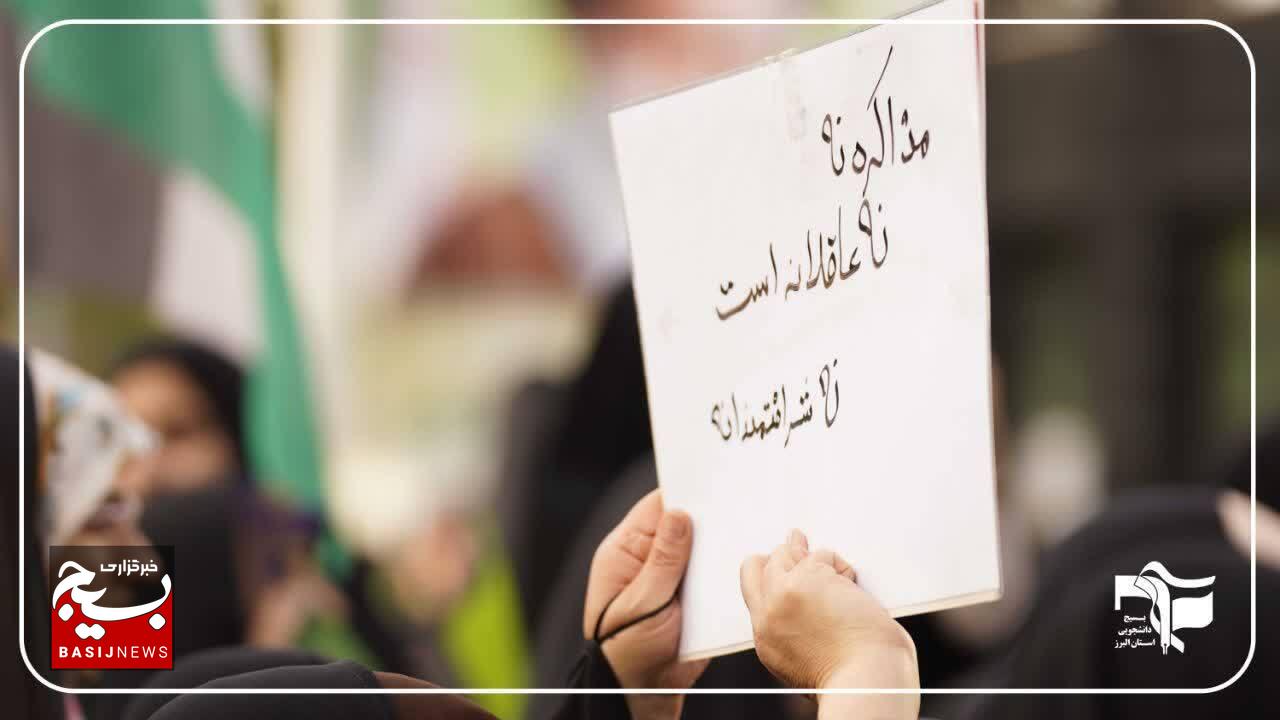 مذاکره نه
نه عاقلانه است
نه شرافتمندانه
خبرگزاری
بسیج
BASIJNEWS
بسیج
دانشجویی
استان البرز